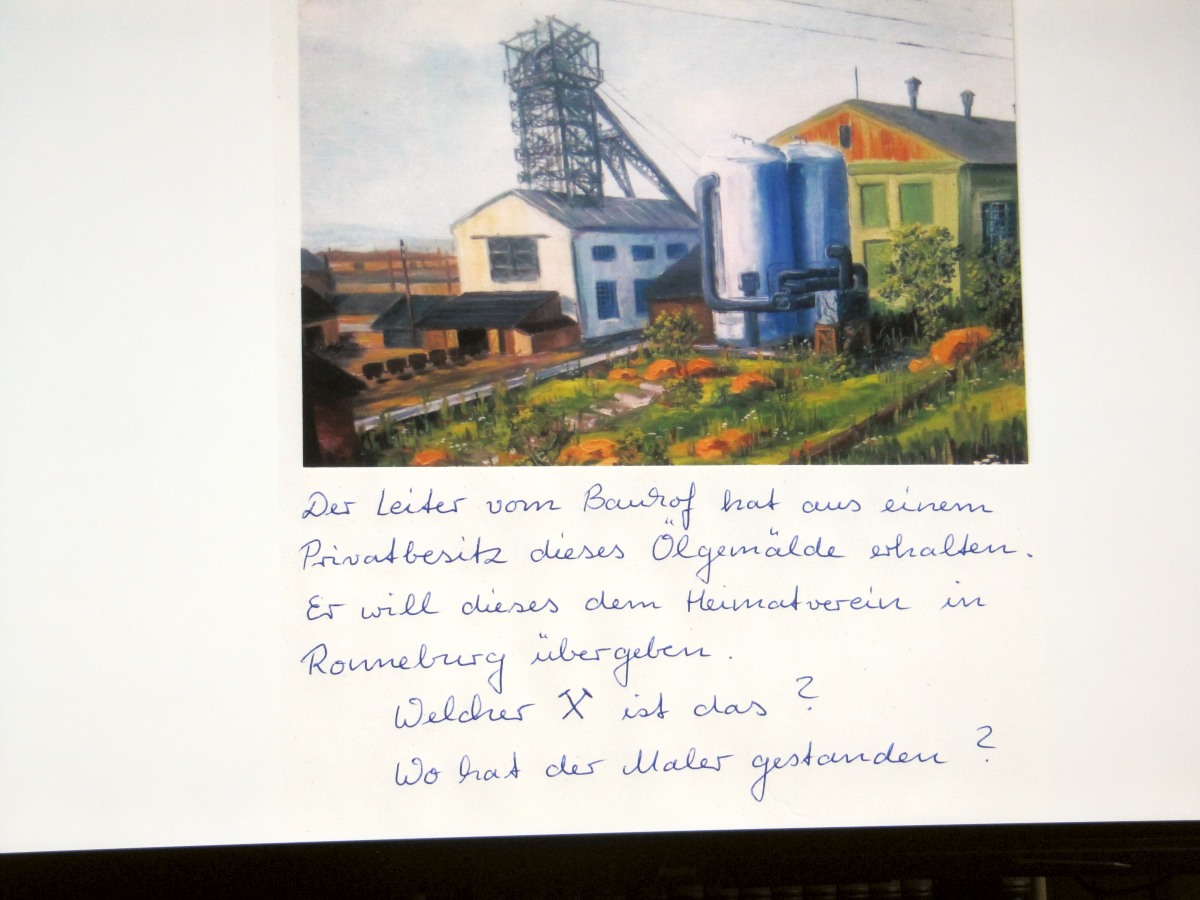 Der Leiter vom Bauhof hat aus einem
Privatbesitz dieses Ölgemälde erhalten.
Er will dieses dem Heimatverein in
Ronneburg übergeben.
Welcher ⚒ ist das ?
Wo hat der Maler gestanden ?